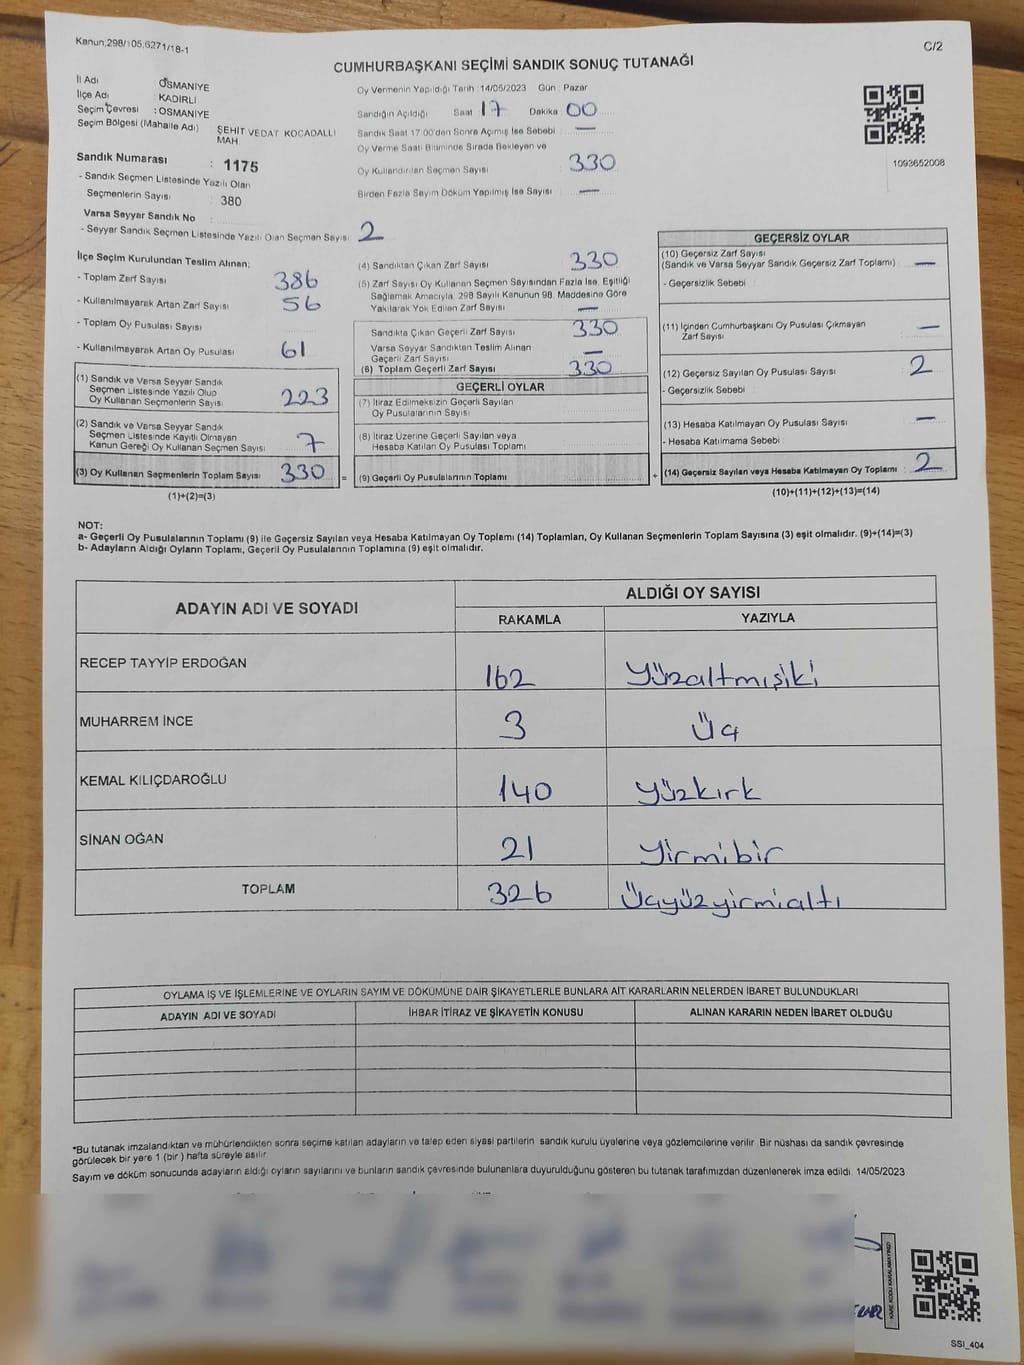 Kanun:298/105,6271/18-1
C/2
CUMHURBAŞKANI SEÇİMİ SANDIK SONUÇ TUTANAĞI
İl Adı : OSMANİYE
İlçe Adı : KADİRLİ
Seçim Çevresi : OSMANİYE
Seçim Bölgesi (Mahalle Adı) ŞEHİT VEDAT KOCADALLI MAH.
Sandık Numarası : 1175
- Sandık Seçmen Listesinde Yazılı Olan
Seçmenlerin Sayısı : 380
Varsa Seyyar Sandık No :
- Seyyar Sandık Seçmen Listesinde Yazılı Olan Seçmen Sayısı: 2
Oy Vermenin Yapıldığı Tarih :14/05/2023 Gün : Pazar
Sandığın Açıldığı Saat 17 Dakika 00
Sandık Saat 17:00'den Sonra Açılmış İse Sebebi : —
Oy Verme Saati Bitiminde Sırada Bekleyen ve
Oy Kullandırılan Seçmen Sayısı 330
Birden Fazla Sayım Döküm Yapılmış İse Sayısı : —
1093652008
İlçe Seçim Kurulundan Teslim Alınan;
- Toplam Zarf Sayısı : 386
- Kullanılmayarak Artan Zarf Sayısı : 56
- Toplam Oy Pusulası Sayısı :
- Kullanılmayarak Artan Oy Pusulası : 61
(1) Sandık ve Varsa Seyyar Sandık
Seçmen Listesinde Yazılı Olup
Oy Kullanan Seçmenlerin Sayısı : 223
(2) Sandık ve Varsa Seyyar Sandık
Seçmen Listesinde Kayıtlı Olmayan
Kanun Gereği Oy Kullanan Seçmen Sayısı : 7
(3) Oy Kullanan Seçmenlerin Toplam Sayısı : 330 =
(1)+(2)=(3)
(4) Sandıktan Çıkan Zarf Sayısı : 330
(5) Zarf Sayısı Oy Kullanan Seçmen Sayısından Fazla İse, Eşitliği
Sağlamak Amacıyla, 298 Sayılı Kanunun 98. Maddesine Göre
Yakılarak Yok Edilen Zarf Sayısı : —
Sandıkta Çıkan Geçerli Zarf Sayısı : 330
Varsa Seyyar Sandıktan Teslim Alınan
Geçerli Zarf Sayısı : —
(6) Toplam Geçerli Zarf Sayısı : 330
GEÇERLİ OYLAR
(7) İtiraz Edilmeksizin Geçerli Sayılan
Oy Pusulalarının Sayısı :
(8) İtiraz Üzerine Geçerli Sayılan veya
Hesaba Katılan Oy Pusulası Toplamı :
(9) Geçerli Oy Pusulalarının Toplamı : +
GEÇERSİZ OYLAR
(10) Geçersiz Zarf Sayısı
(Sandık ve Varsa Seyyar Sandık Geçersiz Zarf Toplamı) : —
- Geçersizlik Sebebi :
(11) İçinden Cumhurbaşkanı Oy Pusulası Çıkmayan
Zarf Sayısı : —
(12) Geçersiz Sayılan Oy Pusulası Sayısı : 2
- Geçersizlik Sebebi :
(13) Hesaba Katılmayan Oy Pusulası Sayısı : —
- Hesaba Katılmama Sebebi :
(14) Geçersiz Sayılan veya Hesaba Katılmayan Oy Toplamı : 2
(10)+(11)+(12)+(13)=(14)
NOT:
a- Geçerli Oy Pusulalarının Toplamı (9) ile Geçersiz Sayılan veya Hesaba Katılmayan Oy Toplamı (14) Toplamları, Oy Kullanan Seçmenlerin Toplam Sayısına (3) eşit olmalıdır. (9)+(14)=(3)
b- Adayların Aldığı Oyların Toplamı, Geçerli Oy Pusulalarının Toplamına (9) eşit olmalıdır.
ADAYIN ADI VE SOYADI
ALDIĞI OY SAYISI
RAKAMLA YAZIYLA
RECEP TAYYİP ERDOĞAN 162 Yüzaltmışiki
MUHARREM İNCE 3 Üç
KEMAL KILIÇDAROĞLU 140 Yüzkırk
SİNAN OĞAN 21 Yirmibir
TOPLAM 326 Üçyüzyirmialtı
OYLAMA İŞ VE İŞLEMLERİNE VE OYLARIN SAYIM VE DÖKÜMÜNE DAİR ŞİKAYETLERLE BUNLARA AİT KARARLARIN NELERDEN İBARET BULUNDUKLARI
ADAYIN ADI VE SOYADI İHBAR İTİRAZ VE ŞİKAYETİN KONUSU ALINAN KARARIN NEDEN İBARET OLDUĞU
*Bu tutanak imzalandıktan ve mühürlendikten sonra seçime katılan adayların ve talep eden siyasi partilerin sandık kurulu üyelerine veya gözlemcilerine verilir. Bir nüshası da sandık çevresinde
görülecek bir yere 1 (bir ) hafta süreyle asılır.
Sayım ve döküm sonucunda adayların aldığı oyların sayılarını ve bunların sandık çevresinde bulunanlara duyurulduğunu gösteren bu tutanak tarafımızdan düzenlenerek imza edildi. 14/05/2023
KARE KODU KARALAMAYINIZ!
SSI_404